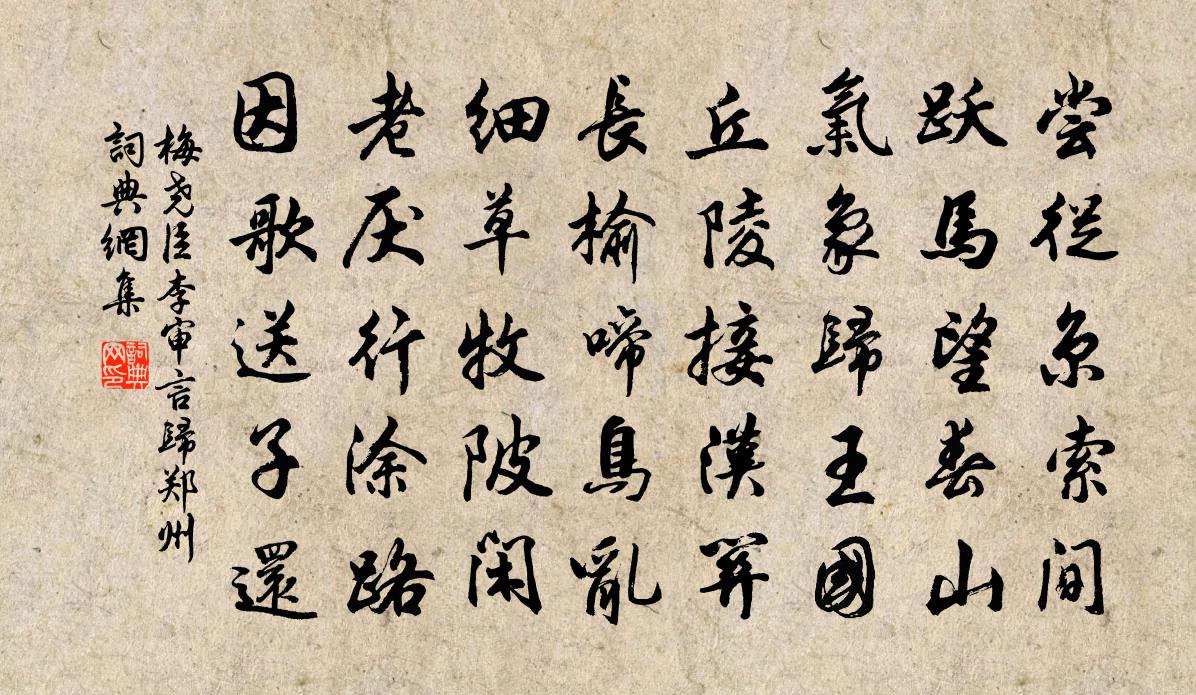 尝從京索間
跃馬望春山
氣象歸王國
丘陵接漢關
長榆啼鳥亂
細草牧陂閑
老厌行涂路
因歌送子還
梅尧臣李审言歸郑州
詞典網集
詞典网印